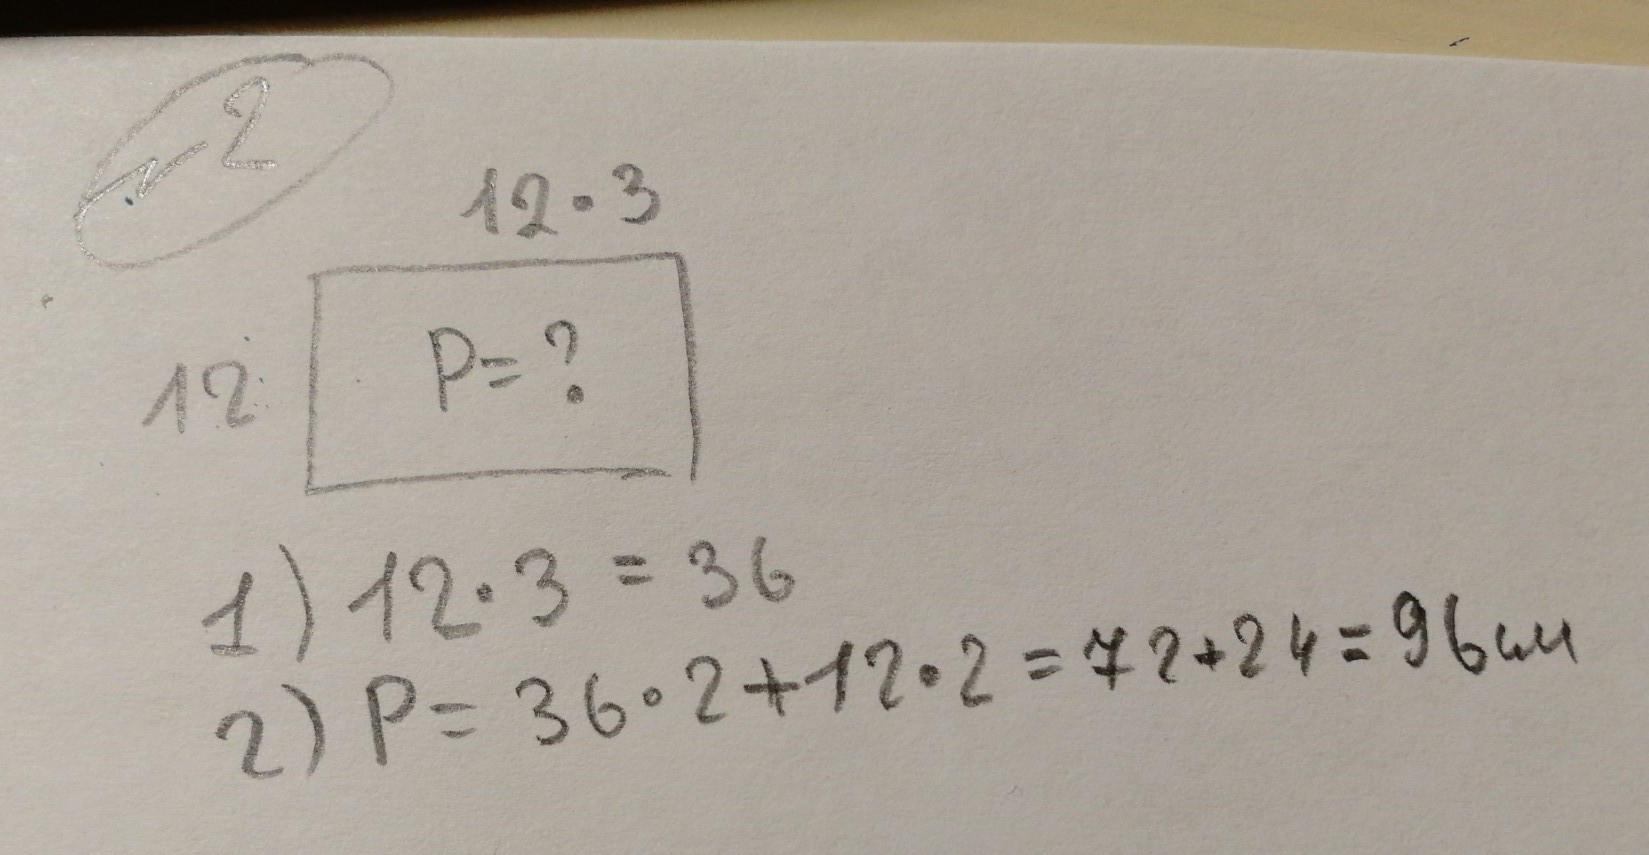 №2
12·3
12
P=?
1) 12·3 = 36
2) P= 36·2+12·2=72+24=96см